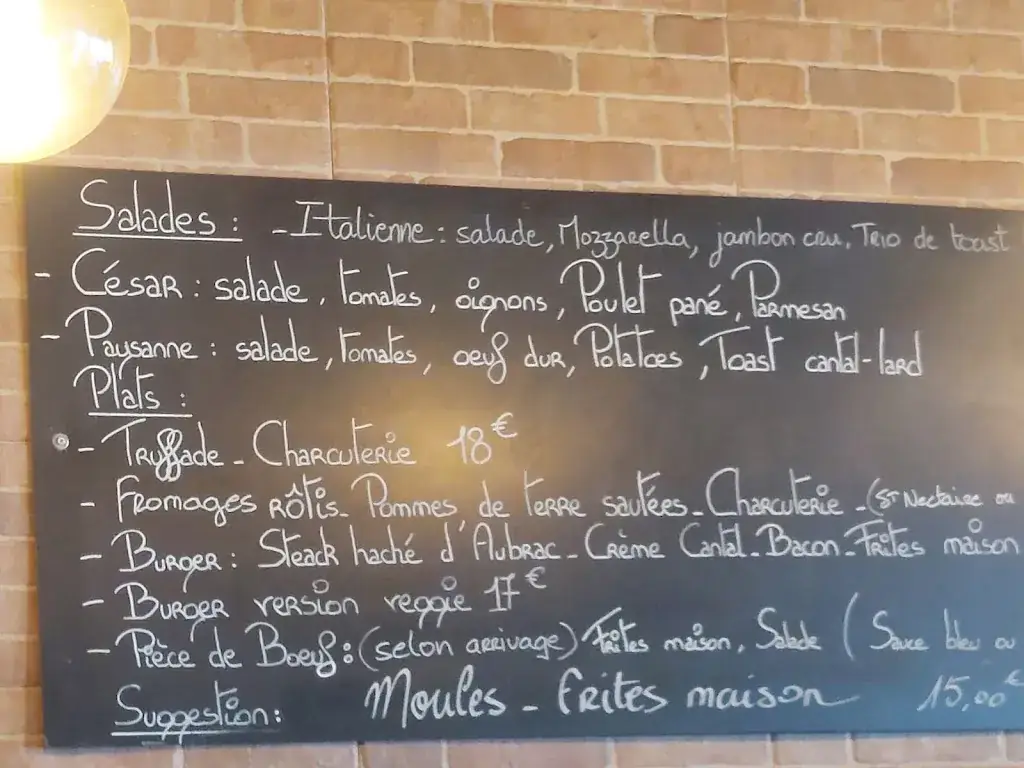 Salades : - Italienne : salade, Mozzarella, jambon cru, Trio de toast
- César : salade, tomates, oignons, Poulet pané, Parmesan
- Paysanne : salade, tomates, oeuf dur, Potatoes, Toast cantal-lard
Plats :
- Truffade - Charcuterie 18€
- Fromages rôtis - Pommes de terre sautées - Charcuterie - (St Nectaire ou
- Burger : Steack haché d'Aubrac - Crème Cantal - Bacon - Frites maison
- Burger version veggie 17€
- Pièce de Boeuf : (selon arrivage) Frites maison, Salade (Sauce bleu ou
Suggestion : Moules - Frites maison 15,00€